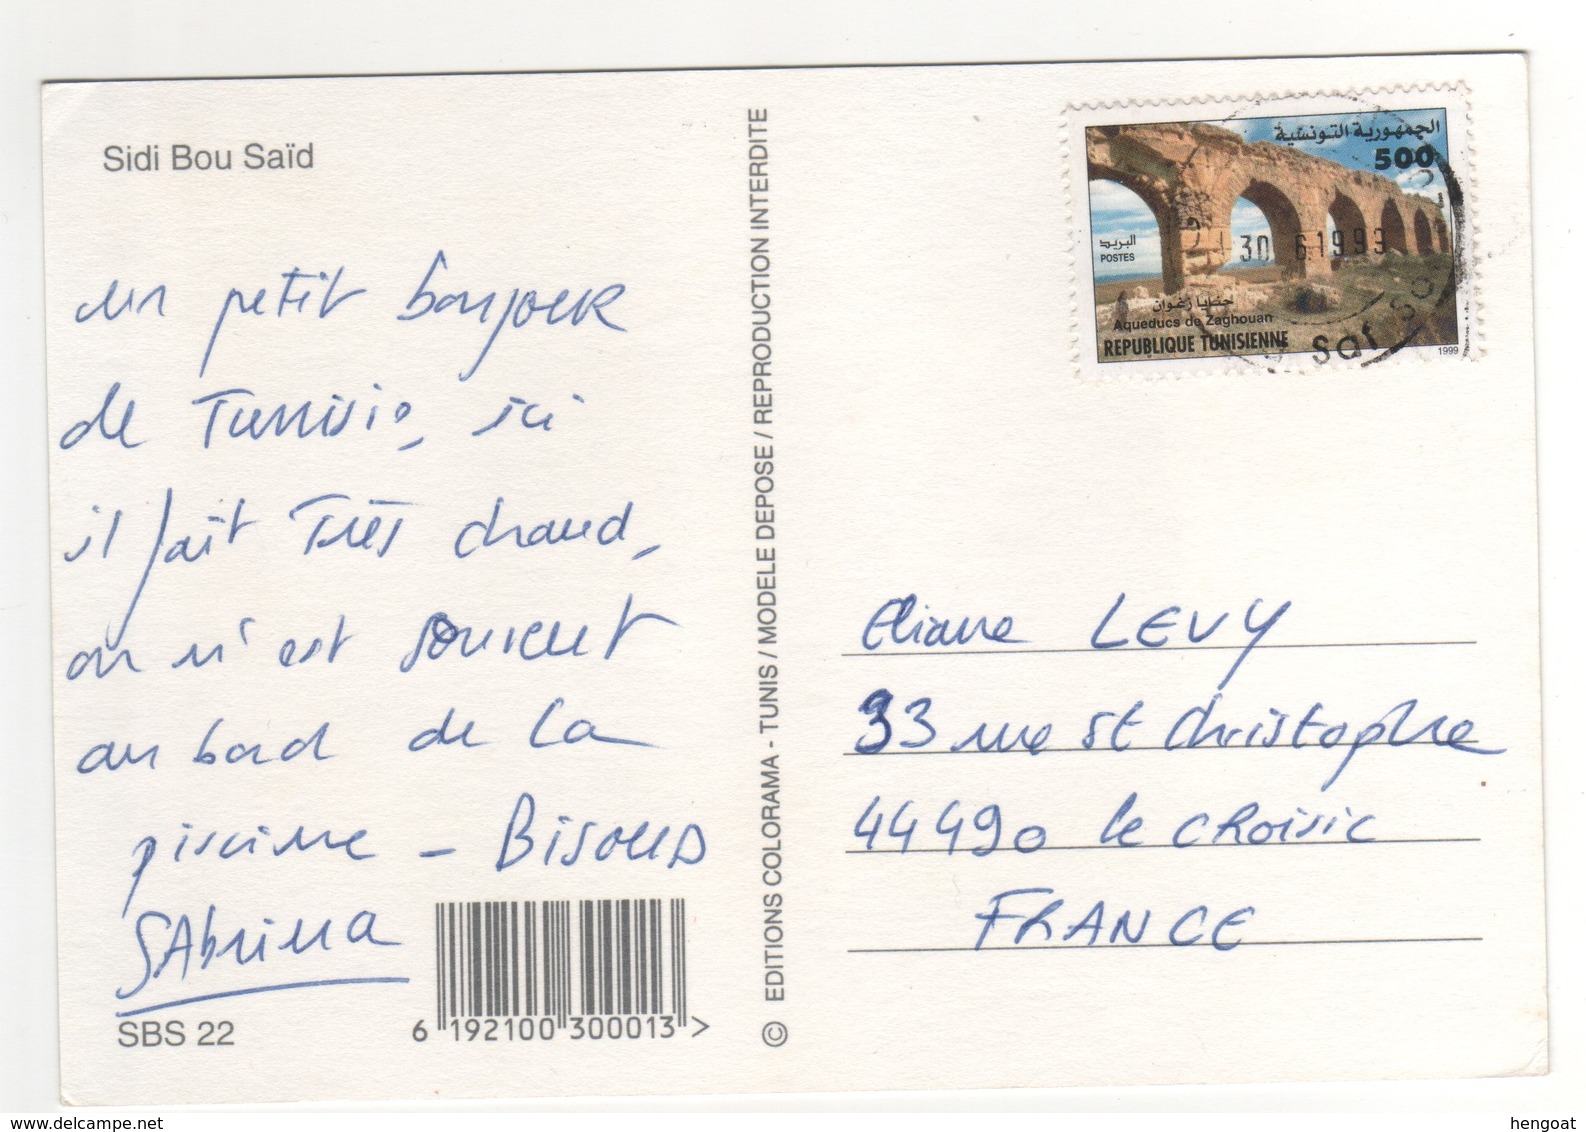 Sidi Bou Saïd
un petit bonjour
de Tunisie, ici
il fait Très chaud,
on n'est souvent
au bord de la
piscine - Bisous
SAbrina
SBS 22
6 192100 300013 >
© EDITIONS COLORAMA - TUNIS / MODELE DEPOSE / REPRODUCTION INTERDITE
الجمهورية التونسية
500
البريد
POSTES
30 6 1993
حنايا زغوان
Aqueducs de Zaghouan
REPUBLIQUE TUNISIENNE
1999
Eliane LEVY
33 rue St Christophe
44490 le CROisic
FRANCE
hengoat
www.delcampe.net